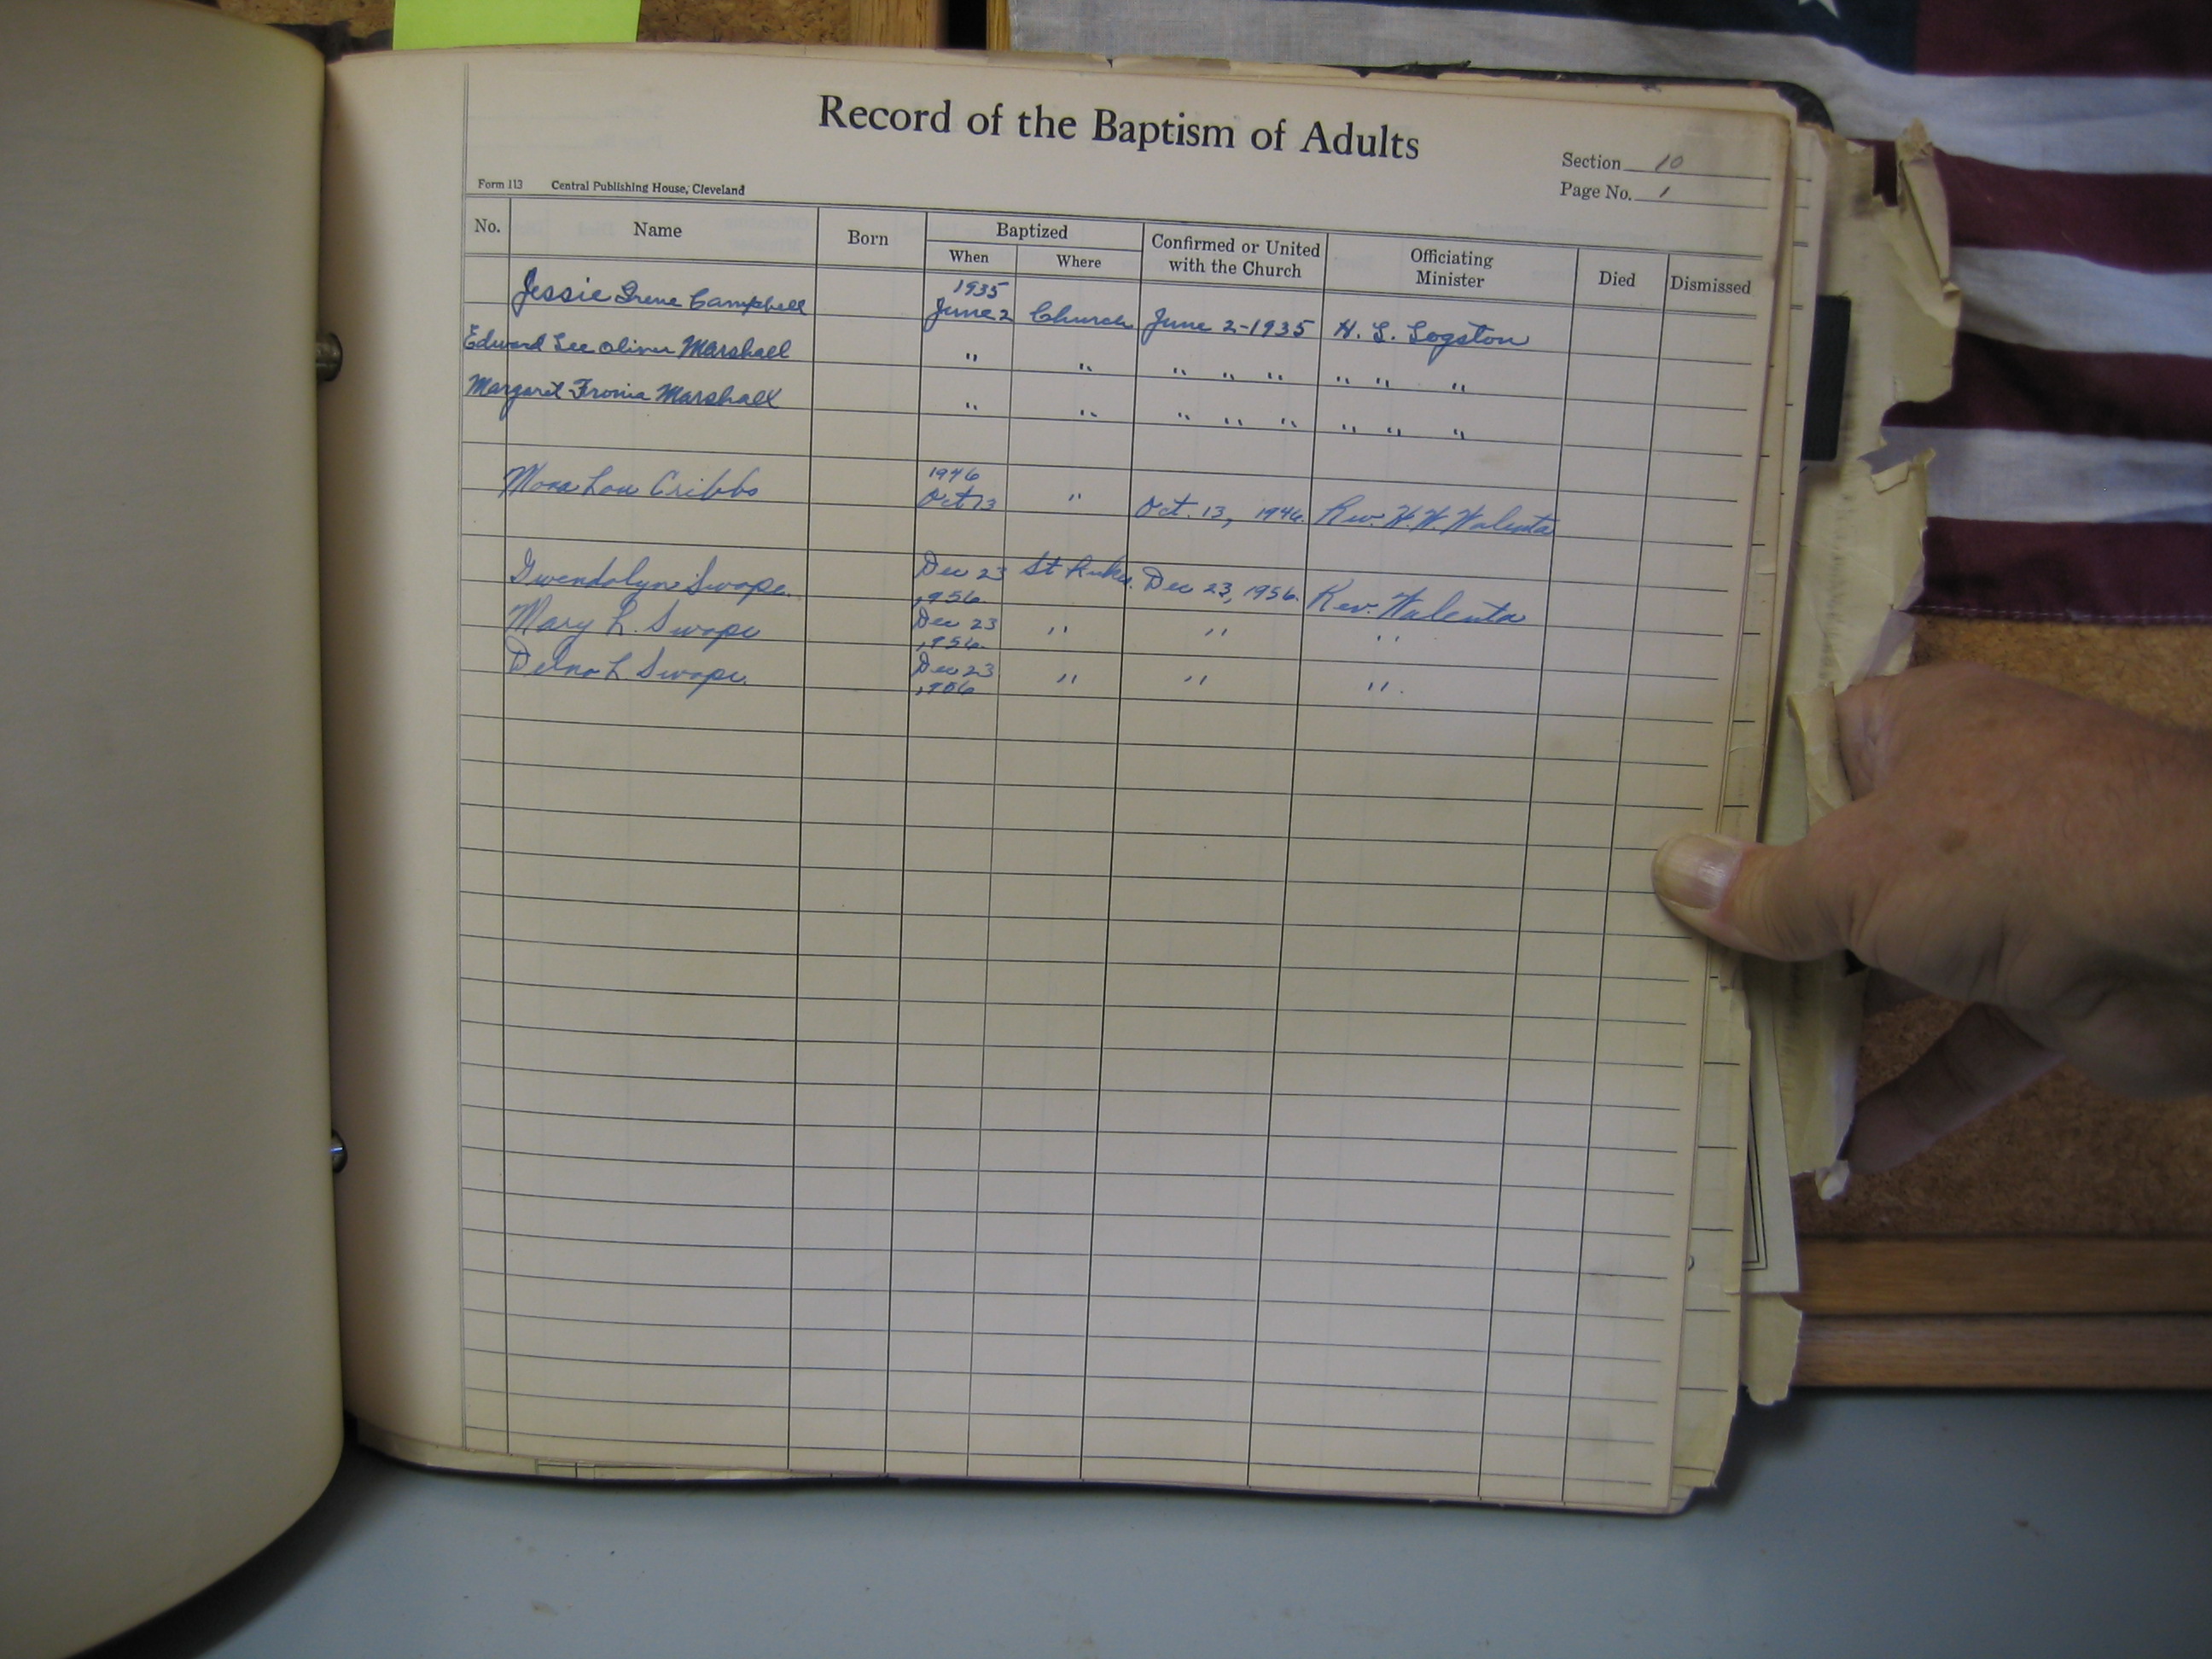 Record of the Baptism of Adults
Section 10
Page No. 1
Form 113 Central Publishing House, Cleveland
No. Name Born Baptized Confirmed or United with the Church Officiating Minister Died Dismissed
When Where
1935
Jessie Irene Campbell June 2 Church June 2-1935 H. L. Logston
Edward Lee Oliver Marshall " " " " " " " "
Margaret Fronia Marshall " " " " " " " "
1946
Mona Lou Cribbs Oct 13 " Oct. 13, 1946. Rev. H. W. Walenta
Gwendolyn Swope. Dec 23 St Lukes. Dec 23, 1956. Rev. Walenta
1956.
Mary L. Swope Dec 23 " " "
1956.
L Swope. Dec 23 " " "
1956